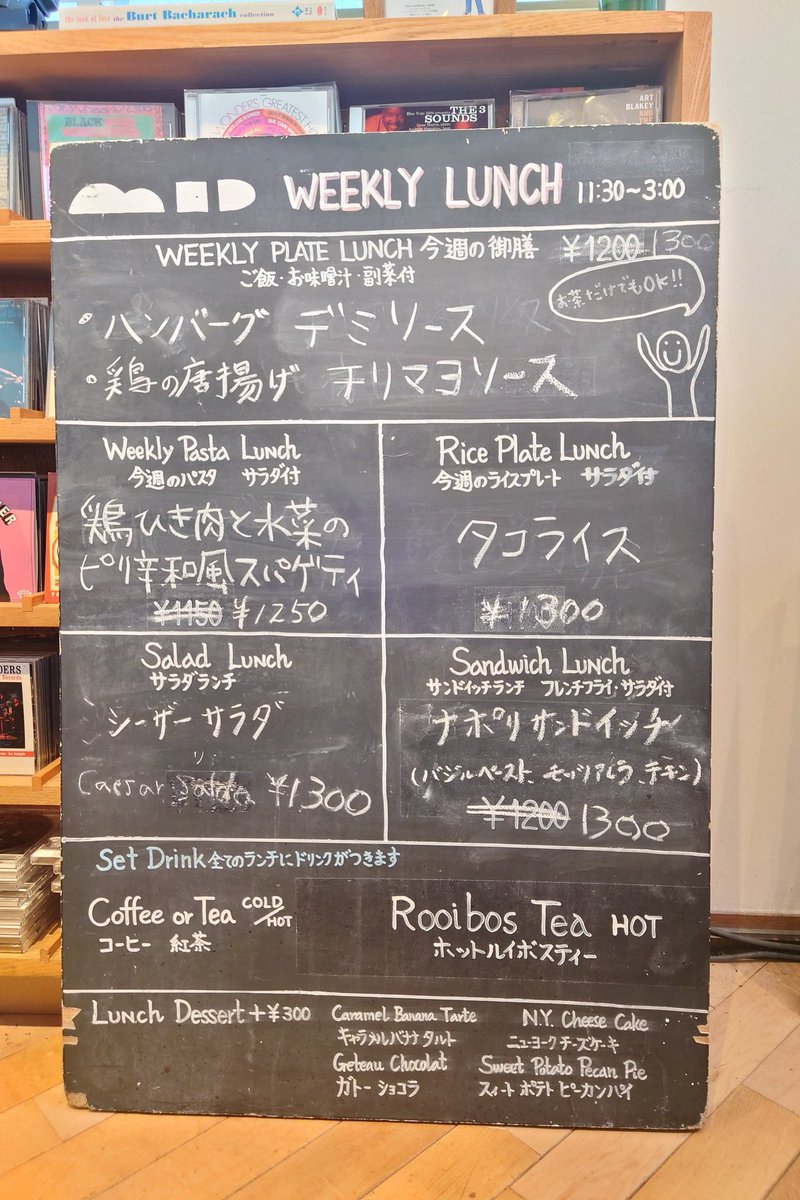 the look of love the Burt Bacharach collection
BLACK
WONDERS GREATEST HI
THE 3
SOUNDS
ART
BLAKEY
AND THE
MID WEEKLY LUNCH 11:30~3:00
WEEKLY PLATE LUNCH 今週の御膳 ¥1200 1300
ご飯・お味噌汁・副菜付
お茶だけでもOK!!
・ハンバーグ デミソース
・鶏の唐揚げ チリマヨソース
Weekly Pasta Lunch
今週のパスタ サラダ付
鶏ひき肉と水菜の
ピリ辛和風スパゲティ
¥1150 ¥1250
Rice Plate Lunch
今週のライスプレート サラダ付
タコライス
¥1300
Salad Lunch
サラダランチ
シーザーサラダ
Caesar Salda ¥1300
Sandwich Lunch
サンドイッチランチ フレンチフライ・サラダ付
ナポリサンドイッチ
(バジルペースト、モッツアレラ、チキン)
¥1200 1300
Set Drink 全てのランチにドリンクがつきます
Coffee or Tea COLD/HOT
コーヒー 紅茶
Rooibos Tea HOT
ホットルイボスティー
Lunch Dessert +¥300
Caramel Banana Tarte
キャラメルバナナタルト
N.Y. Cheese Cake
ニューヨークチーズケーキ
Geteau Chocolat
ガトーショコラ
Sweet Potato Pecan Pie
スィートポテトピーカンパイ